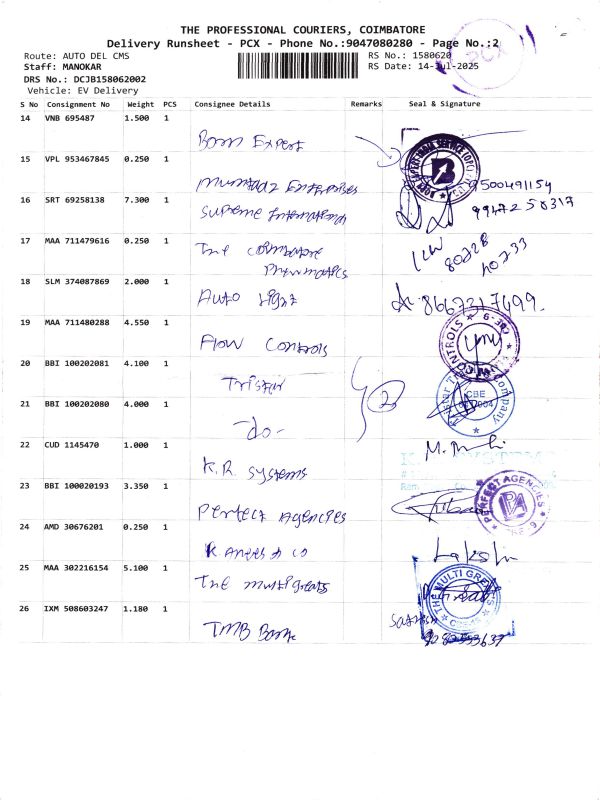 THE PROFESSIONAL COURIERS, COIMBATORE
Delivery Runsheet - PCX - Phone No.:9047080280 - Page No.:2
Route: AUTO DEL CMS
RS No.: 1580620
Staff: MANOKAR
RS Date: 14-Jul-2025
DRS No.: DCJB158062002
Vehicle: EV Delivery
PCX
S No Consignment No Weight PCS Consignee Details Remarks Seal & Signature
14 VNB 695487 1.500 1
Born Expert
15 VPL 953467845 0.250 1
Mumtaz Enterprises 9500491154
16 SRT 69258138 7.300 1
Supreme International 99472 58317
17 MAA 711479616 0.250 1
The Coimbatore
Pneumatics
80228
40233
18 SLM 374087869 2.000 1
Auto Light 8667317499.
19 MAA 711480288 4.550 1
Flow Controls
CONTROLS
20 BBI 100202081 4.100 1
Tristar
2
CBE
Company
21 BBI 100202080 4.000 1
-do-
22 CUD 1145470 1.000 1
K.R. Systems
23 BBI 100020193 3.350 1
Perfect Agencies
PERFECT AGENCIES
24 AMD 30676201 0.250 1
K. Anges & Co
25 MAA 302216154 5.100 1
The Multigreats
THE MULTI GREATS
26 IXM 508603247 1.180 1
TMB Bank